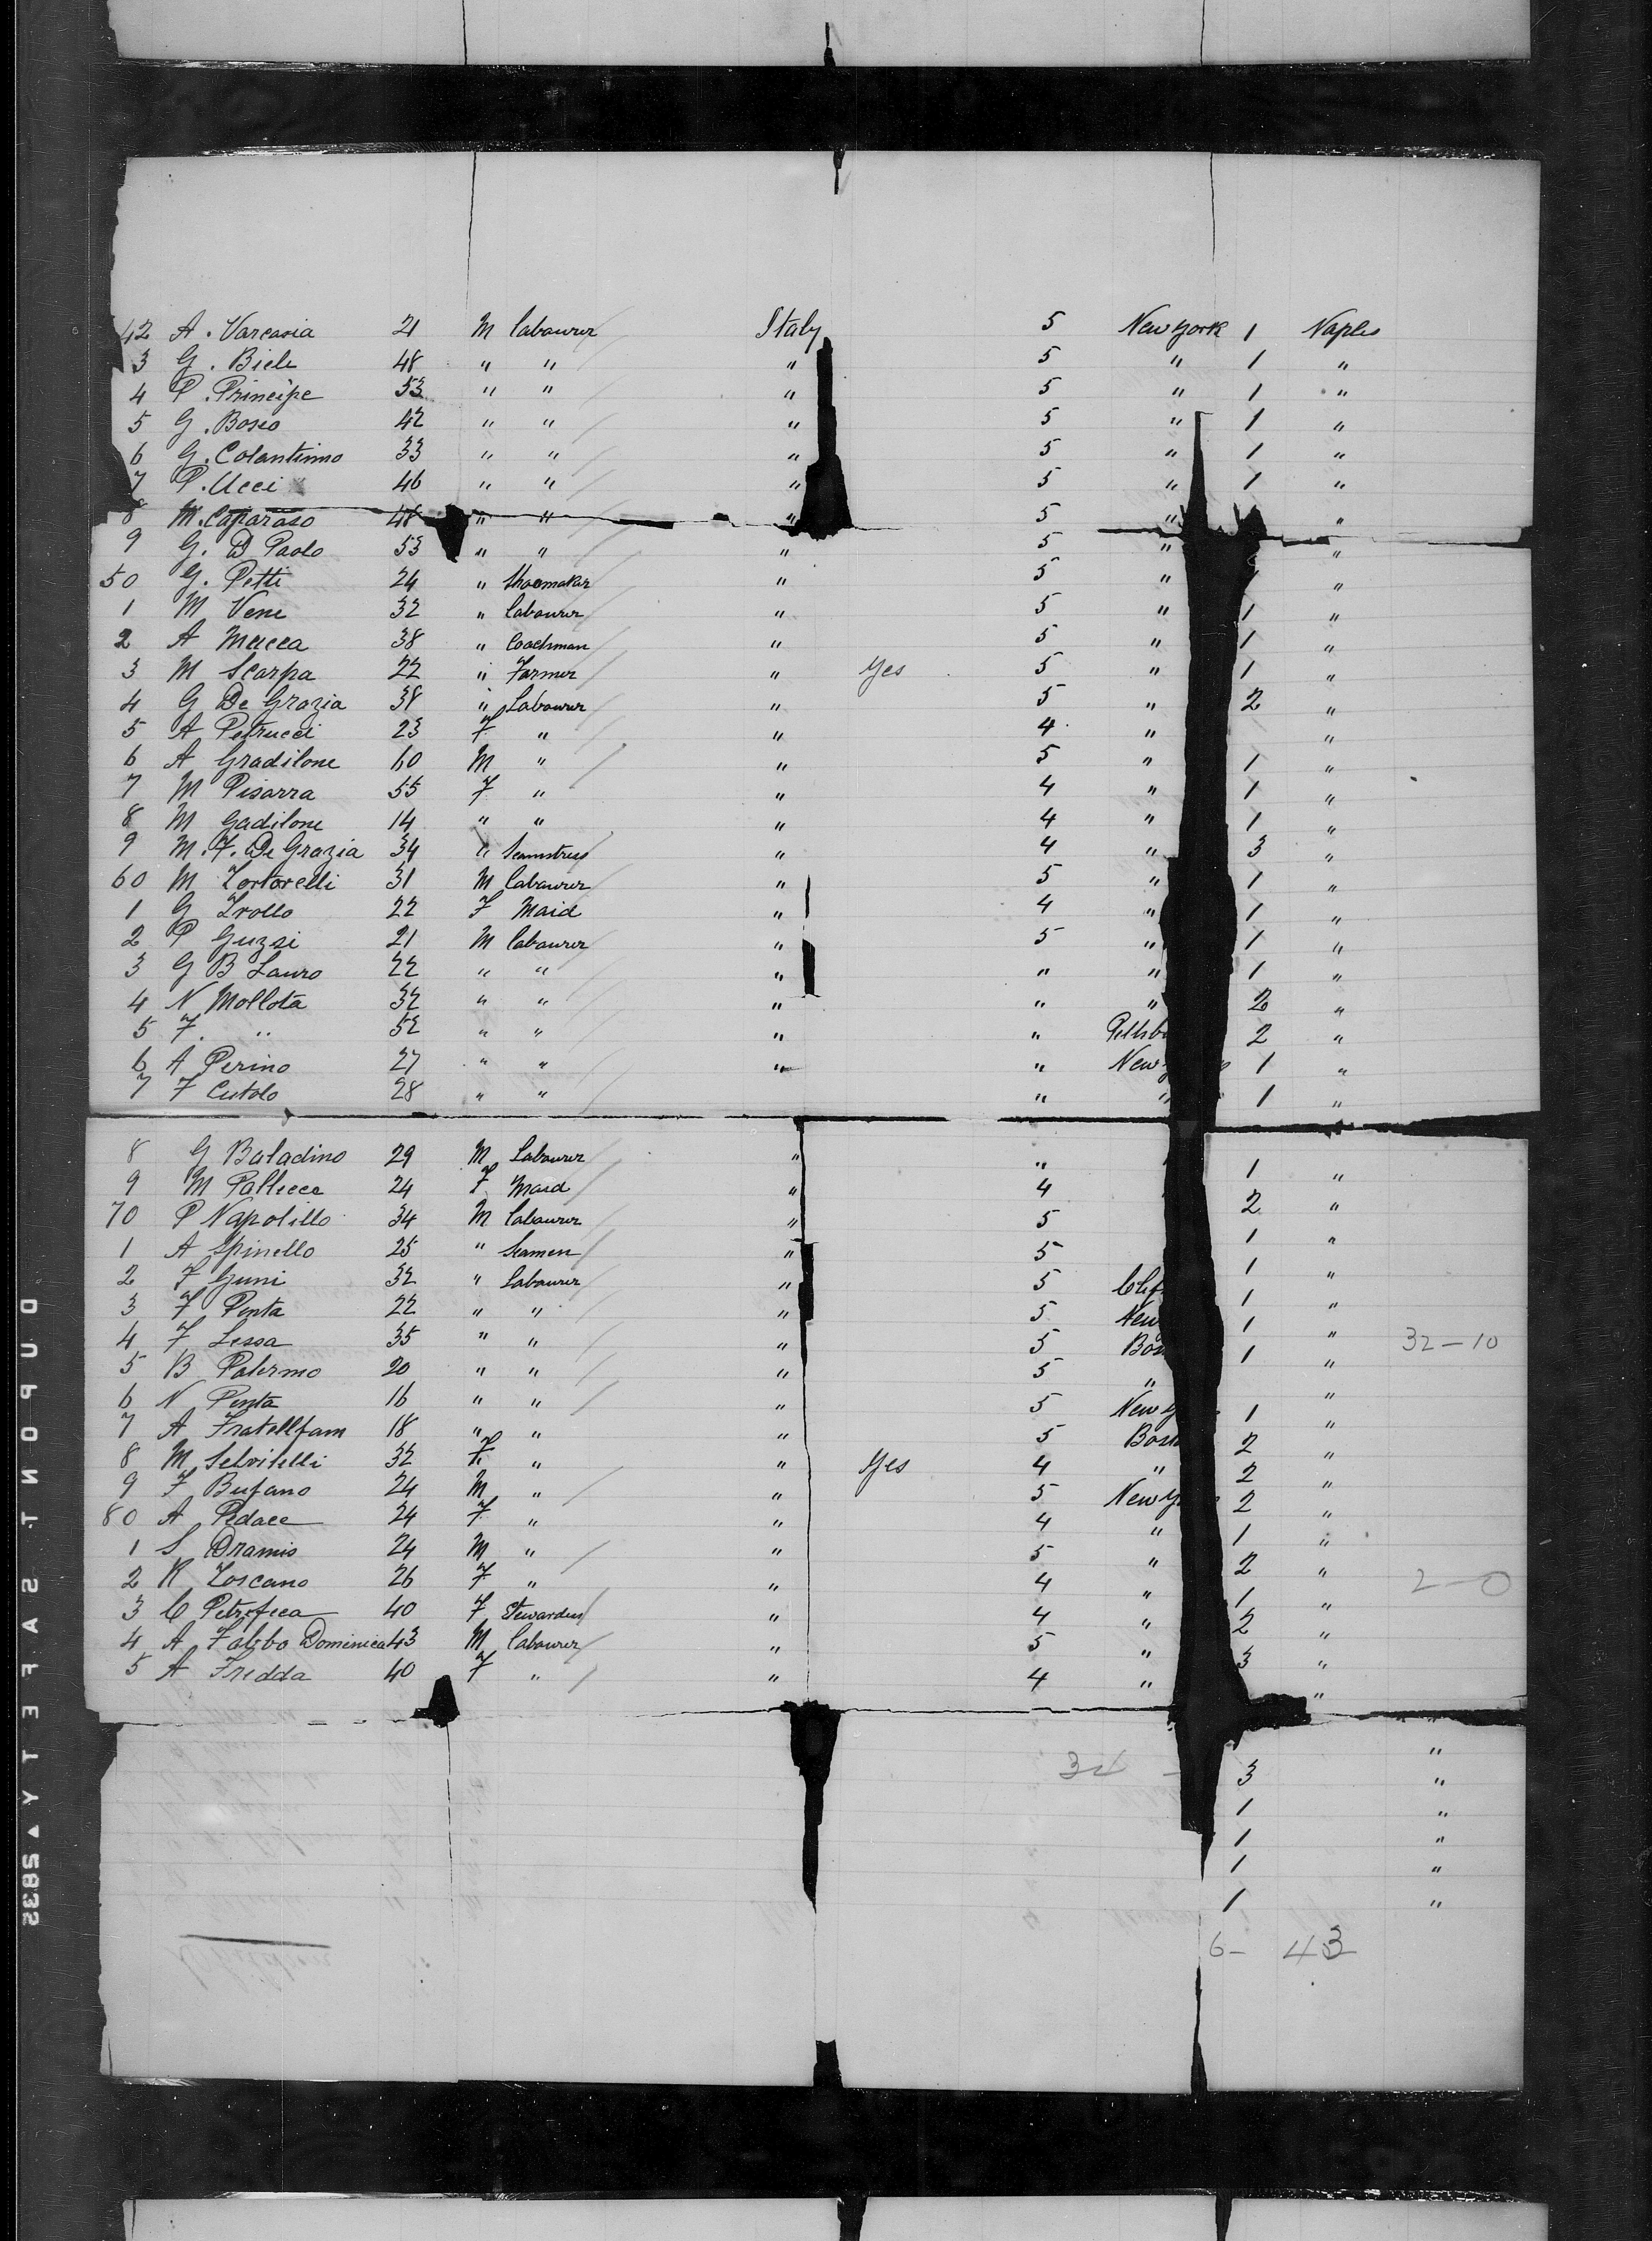 42 A. Varcasia 21 M labourer Italy 5 New York 1 Naples
3 G. Biele 48 " " " 5 " 1 "
4 P. Principe 53 " " " 5 " 1 "
5 G. Bosco 42 " " " 5 " 1 "
6 G. Colantinno 33 " " " 5 " 1 "
7 P. Ucci 46 " " " 5 " 1 "
8 M. Caparaso 48 " " " 5 " "
9 G. D Paolo 53 " " " 5 " "
50 G. Petti 24 " Shoemaker " 5 " 1 "
1 M Vene 32 " labourer " 5 " 1 "
2 A Mucca 38 " Coachman " 5 " 1 "
3 M Scarpa 22 " Farmer " Yes 5 " 1 "
4 G De Grazia 38 " Labourer " 5 " 2 "
5 A Petrucci 23 F " " 4 " "
6 A Gradilone 60 M " " 5 " 1 "
7 M Pisarra 55 F " " 4 " 1 "
8 M Gadilone 14 " " " 4 " 1 "
9 M. F. De Grazia 34 " Seamstress " 4 " 3 "
60 M Tortorelli 31 M labourer " 5 " 1 "
1 G Trollo 22 F Maid " 4 " 1 "
2 P Guzsi 21 M labourer " 5 " 1 "
3 G B Lauro 22 " " " " " 1 "
4 N Mollota 32 " " " " " 2 "
5 F. " 52 " " " " 2 "
6 A Perino 27 " " " " New 1 "
7 F Cutolo 28 " " " " 1 "
8 G Baladino 29 M Labourer " " 1 "
9 M Pallecce 24 F Maid " 4 2 "
70 P Napolillo 34 M labourer " 5 1 "
1 A Spinello 25 " Seamen " 5 1 "
2 F Guni 32 " Labourer " 5 1 "
3 F Penta 22 " " " 5 New 1 "
4 F Lessa 35 " " " 5 Bos 1 " 32-10
5 B Palermo 20 " " " 5 " "
6 N Penta 16 " " " 5 New Y 1 "
7 A Fratellfam 18 " " " 5 Bost 2 "
8 M Selvitelli 32 F " " Yes 4 " 2 "
9 F Bufano 24 M " " 5 New Y 2 "
80 A Pedace 24 F " " 4 " 1 "
1 S Dramis 24 M " " 5 " 2 "
2 R Toscano 26 F " " 4 " 1 " 2-0
3 C Petrifeca 40 F Stewardess " 4 " 2 "
4 A Falbo Dominica 43 M labourer " 5 " 3 "
5 A Fredda 40 F " " 4 " "
"
"
3 "
1 "
1 "
1 "
1 "
6- 43
SAFETY 5832
DUPONT